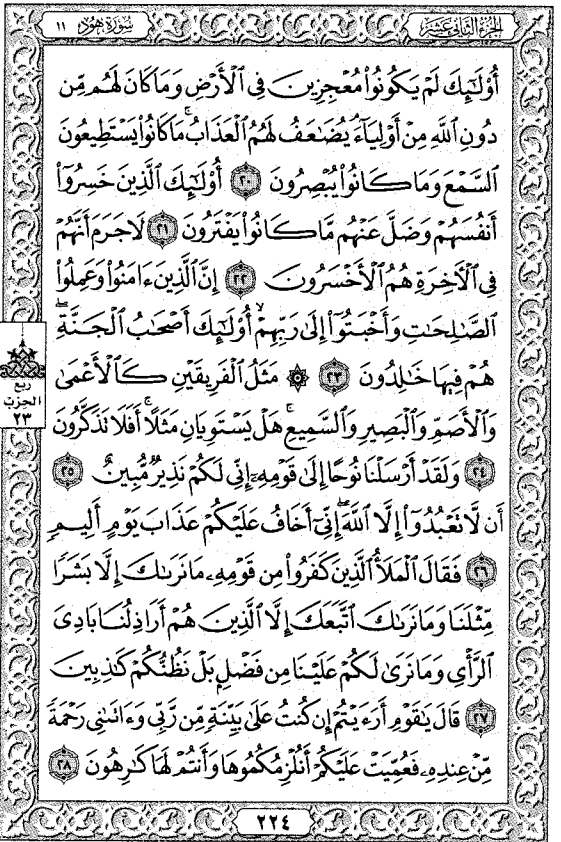 الجزء الثاني عشر
سورة هود ١١
أُوْلَٰٓئِكَ لَمْ يَكُونُواْ مُعْجِزِينَ فِي ٱلْأَرْضِ وَمَا كَانَ لَهُم مِّن
دُونِ ٱللَّهِ مِنْ أَوْلِيَآءَۘ يُضَٰعَفُ لَهُمُ ٱلْعَذَابُۚ مَا كَانُواْ يَسْتَطِيعُونَ
ٱلسَّمْعَ وَمَا كَانُواْ يُبْصِرُونَ ٢٠ أُوْلَٰٓئِكَ ٱلَّذِينَ خَسِرُوٓاْ
أَنفُسَهُمْ وَضَلَّ عَنْهُم مَّا كَانُواْ يَفْتَرُونَ ٢١ لَا جَرَمَ أَنَّهُمْ
فِي ٱلْأٓخِرَةِ هُمُ ٱلْأَخْسَرُونَ ٢٢ إِنَّ ٱلَّذِينَ ءَامَنُواْ وَعَمِلُواْ
ٱلصَّٰلِحَٰتِ وَأَخْبَتُوٓاْ إِلَىٰ رَبِّهِمْ أُوْلَٰٓئِكَ أَصْحَٰبُ ٱلْجَنَّةِۖ
هُمْ فِيهَا خَٰلِدُونَ ٢٣ ۞ مَثَلُ ٱلْفَرِيقَيْنِ كَٱلْأَعْمَىٰ
وَٱلْأَصَمِّ وَٱلْبَصِيرِ وَٱلسَّمِيعِۚ هَلْ يَسْتَوِيَانِ مَثَلًاۚ أَفَلَا تَذَكَّرُونَ
٢٤ وَلَقَدْ أَرْسَلْنَا نُوحًا إِلَىٰ قَوْمِهِۦٓ إِنِّي لَكُمْ نَذِيرٌ مُّبِينٌ ٢٥
أَن لَّا تَعْبُدُوٓاْ إِلَّا ٱللَّهَۖ إِنِّيٓ أَخَافُ عَلَيْكُمْ عَذَابَ يَوْمٍ أَلِيمٍ
٢٦ فَقَالَ ٱلْمَلَأُ ٱلَّذِينَ كَفَرُواْ مِن قَوْمِهِۦ مَا نَرَىٰكَ إِلَّا بَشَرًا
مِّثْلَنَا وَمَا نَرَىٰكَ ٱتَّبَعَكَ إِلَّا ٱلَّذِينَ هُمْ أَرَاذِلُنَا بَادِيَ
ٱلرَّأْيِ وَمَا نَرَىٰ لَكُمْ عَلَيْنَا مِن فَضْلٍۭ بَلْ نَظُنُّكُمْ كَٰذِبِينَ
٢٧ قَالَ يَٰقَوْمِ أَرَءَيْتُمْ إِن كُنتُ عَلَىٰ بَيِّنَةٍ مِّن رَّبِّي وَءَاتَىٰنِي رَحْمَةً
مِّنْ عِندِهِۦ فَعُمِّيَتْ عَلَيْكُمْ أَنُلْزِمُكُمُوهَا وَأَنتُمْ لَهَا كَٰرِهُونَ ٢٨
ربع
الحزب
٢٣
٢٢٤